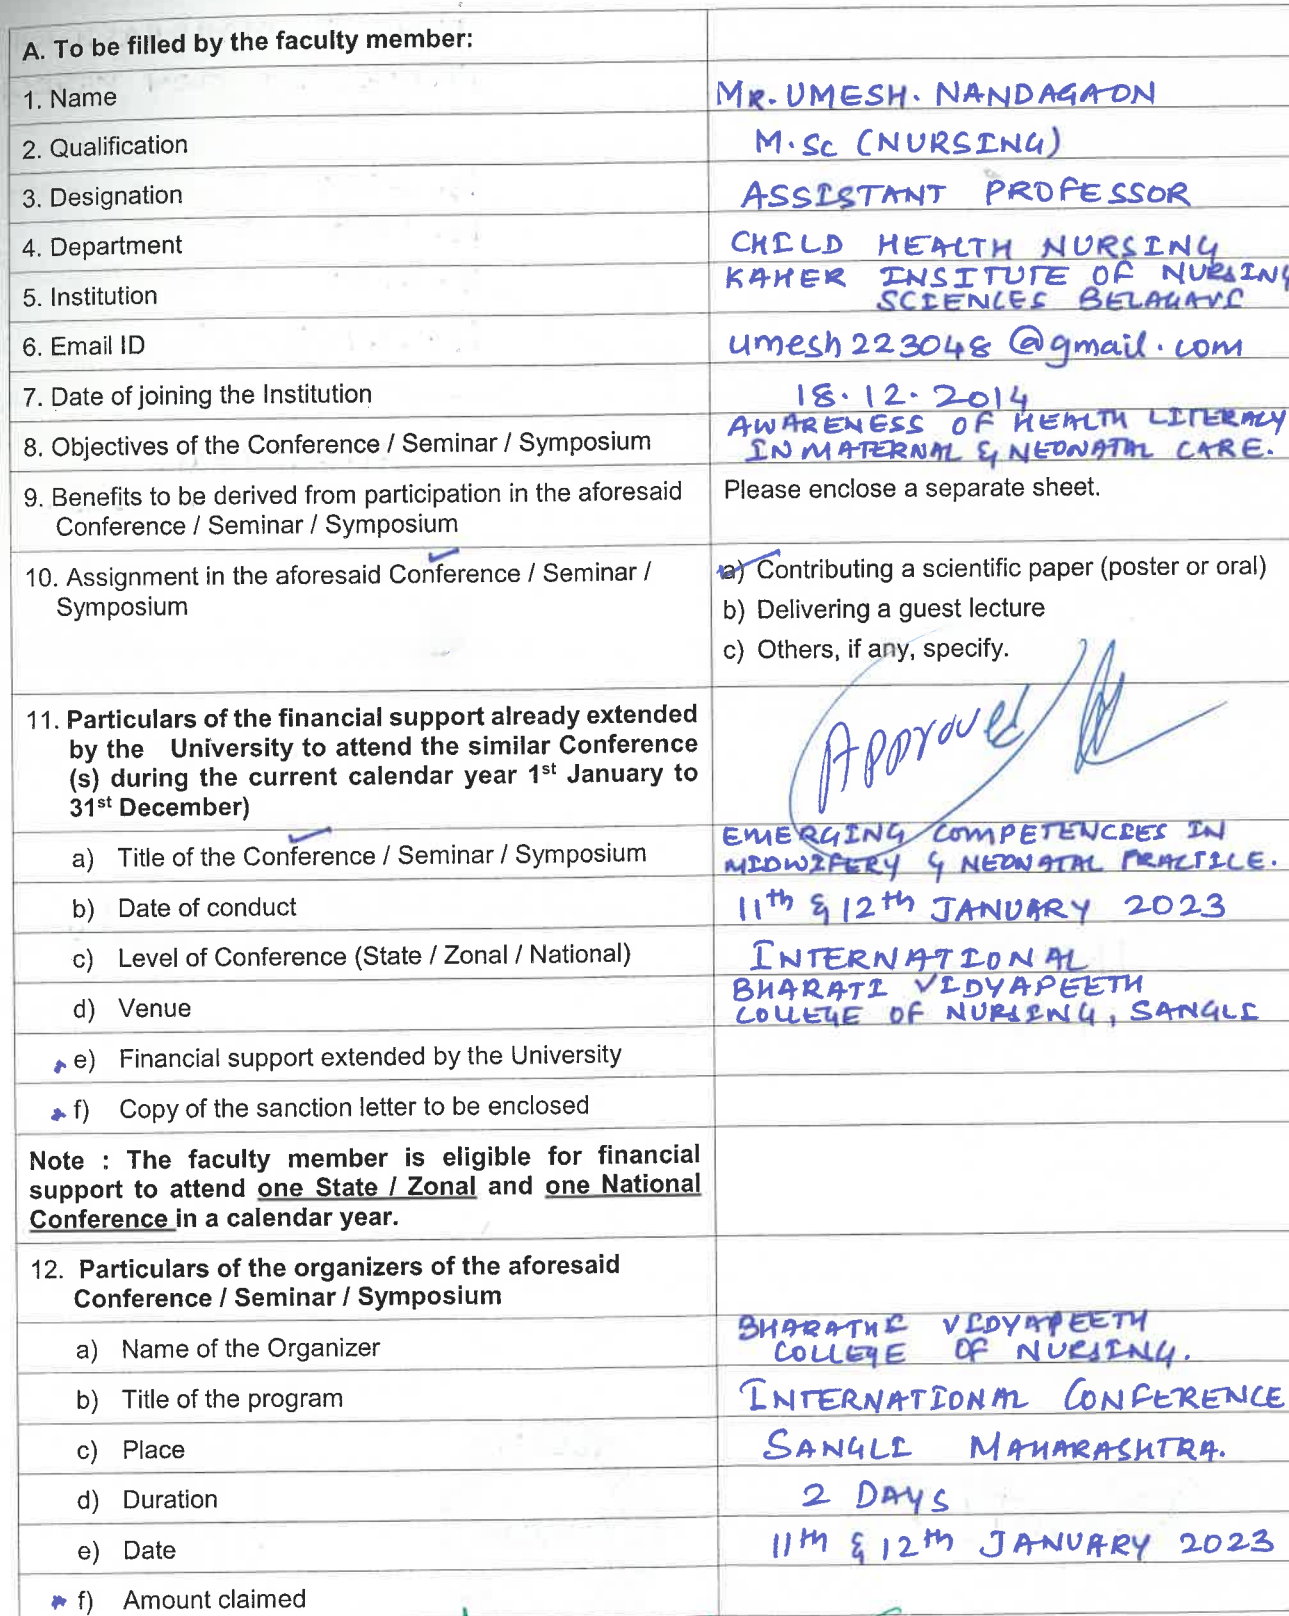 A. To be filled by the faculty member:
1. Name
MR. UMESH. NANDAGAON
2. Qualification
M.Sc (NURSING)
3. Designation
ASSISTANT PROFESSOR
4. Department
CHILD HEALTH NURSING
5. Institution
KAHER INSITUTE OF NURSING
SCIENCES BELAGAVI
6. Email ID
umesh223048@gmail.com
7. Date of joining the Institution
18.12.2014
8. Objectives of the Conference / Seminar / Symposium
AWARENESS OF HEALTH LITERACY
IN MATERNAL & NEONATAL CARE.
9. Benefits to be derived from participation in the aforesaid
Conference / Seminar / Symposium
Please enclose a separate sheet.
10. Assignment in the aforesaid Conference / Seminar /
Symposium
a) Contributing a scientific paper (poster or oral)
b) Delivering a guest lecture
c) Others, if any, specify.
11. Particulars of the financial support already extended
by the University to attend the similar Conference
(s) during the current calendar year 1st January to
31st December)
Approved
a) Title of the Conference / Seminar / Symposium
EMERGING COMPETENCIES IN
MIDWIFERY & NEONATAL PRACTICE.
b) Date of conduct
11th & 12th JANUARY 2023
c) Level of Conference (State / Zonal / National)
INTERNATIONAL
d) Venue
BHARATI VIDYAPEETH
COLLEGE OF NURSING, SANGLI
e) Financial support extended by the University
f) Copy of the sanction letter to be enclosed
Note : The faculty member is eligible for financial
support to attend one State / Zonal and one National
Conference in a calendar year.
12. Particulars of the organizers of the aforesaid
Conference / Seminar / Symposium
a) Name of the Organizer
BHARATHI VIDYAPEETH
COLLEGE OF NURSING.
b) Title of the program
INTERNATIONAL CONFERENCE
c) Place
SANGLI MAHARASHTRA.
d) Duration
2 DAYS
e) Date
11th & 12th JANUARY 2023
f) Amount claimed